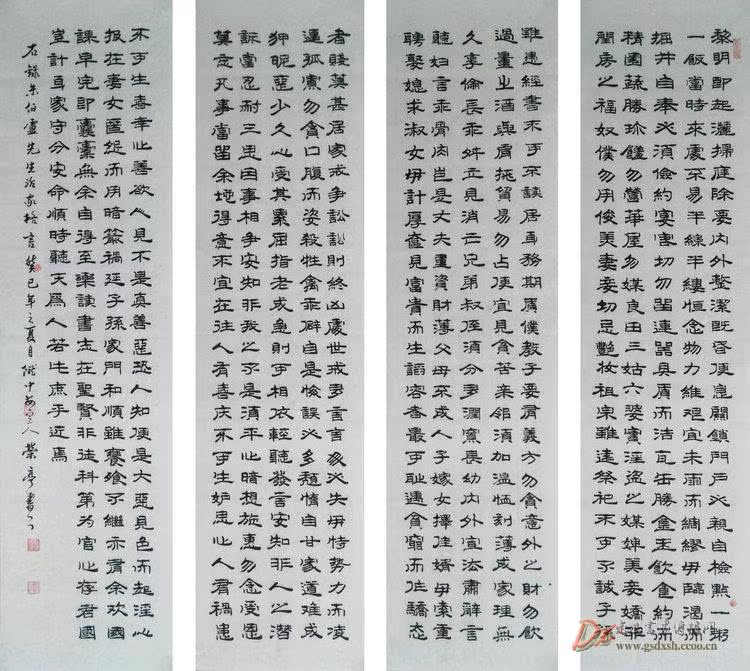 黎明即起灑掃庭除要內外整潔既昏便息關鎖門戶必親自檢點一粥
一飯當時來處不易半絲半縷恒念物力維艱宜未雨而綢繆毋臨渴而
掘井自奉必須儉約宴客切勿留連器具質而洁瓦缶勝金玉飲食約而
精園蔬勝珍饈勿營華屋勿謀良田三姑六婆實淫盜之媒婢美妾嬌非
閨房之福奴僕勿用俊美妻妾切忌艷妝祖宗雖遠祭祀不可不誠子孫
雖愚經書不可不讀居身務期質僕教子要有義方勿貪意外之財勿飲
過量之酒與肩挑貿易勿占便宜見貧苦親鄰須加溫恤刻薄成家理無
久享倫長乖舛立見消亡兄弟叔侄須分多潤寡長幼內外宜法肅辭言
聽婦言乖骨肉豈是丈夫重資財薄父母不成人子嫁女擇佳婿毋索重
聘娶媳求淑女毋計厚奩見富貴而生諂容者最可恥遇貧窮而作驕態
者賤莫甚居家戒爭訟訟則終凶處世戒多言言多必失毋恃勢力而凌
逼孤寡勿貪口腹而恣殺牲禽乖僻自是悔誤必多頹惰自甘家道難成
狎昵惡少久必受其累屈指老成急則可相依輕聽發言安知非人之譖
訴當忍耐三思因事相爭安知非我之不是須平心暗想施惠勿念受恩
莫忘凡事當留余地得意不宜在往人有喜慶不可生妒忌心人有禍患
不可生喜幸心善欲人見不是真善惡恐人知便是大惡見色而起淫心
報在妻女匿怨而用暗箭禍延子孫家門和順雖饔飧不繼亦有余歡國
課早完即囊橐無余自得至樂讀書志在聖賢非徒科第為官心存君國
豈計身家守分安命順時聽天為人若此庶乎近焉
右錄朱伯廬先生治家格言癸巳年之夏月 榮亭書
www.gsdxsh.ccoo.cn